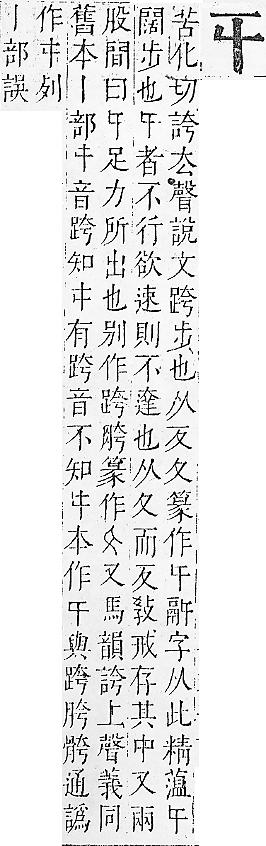 㐄
苦化切誇去聲說文跨步也从反夂篆作㐄字从此精薀㐄
闊步也㐄者不行欲速則不達也从夂而反敎戒存其中又兩
股間曰㐄足力所出也別作跨胯篆作㐄又馬韻誇上聲義同
舊本丨部㐄音跨知㐄有跨音不知㐄本作㐄與跨胯骻通譌
作㐄列
丨部誤